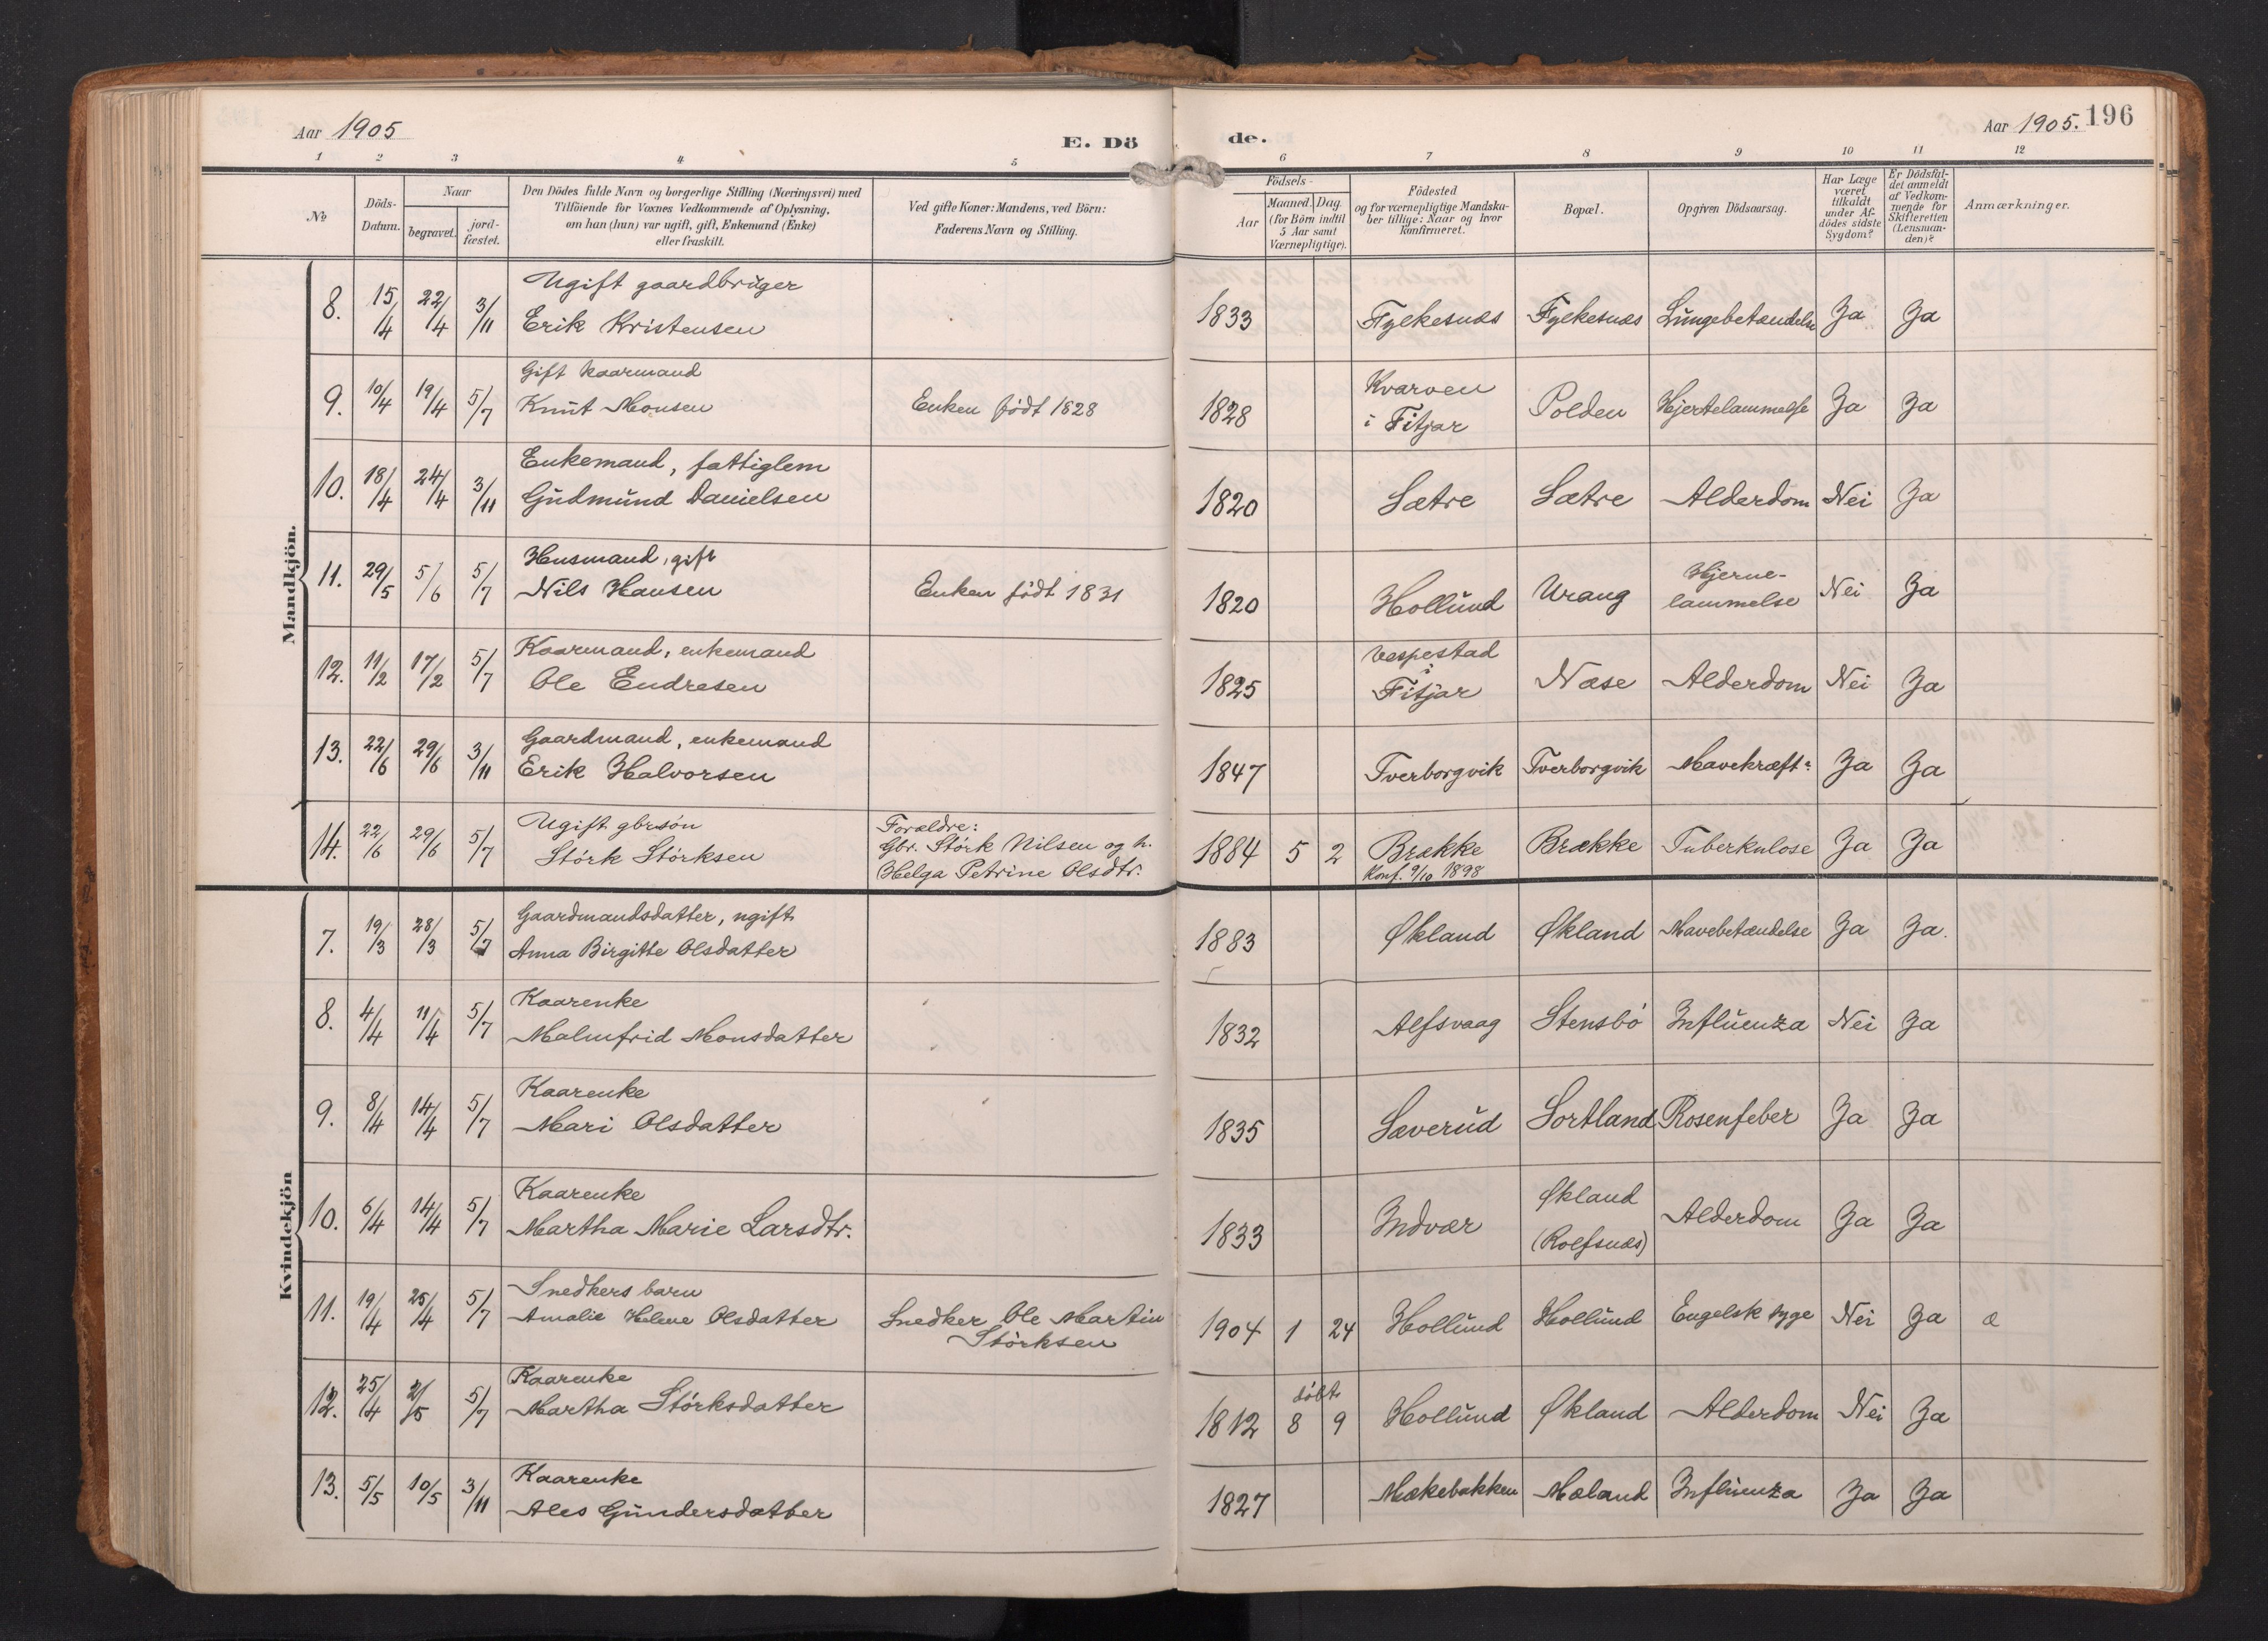 Aar 1905
E. Dö
de.
Aar 1905.
196
1 2 3 4 5 6 7 8 9 10 11 12
№
Döds-
Datum.
Naar
begravet.
jord-
fæstet.
Den Dödes fulde Navn og borgerlige Stilling (Næringsvei) med
Tilföiende for Voxnes Vedkommende af Oplysning,
om han (hun) var ugift, gift, Enkemand (Enke)
eller fraskilt.
Ved gifte Koner: Mandens, ved Börn:
Faderens Navn og Stilling.
Födsels-
Aar
Maaned. Dag.
(for Börn indtil
5 Aar samt
Værnepligtige).
Födested
og for værnepligtige Mandska-
ber tillige: Naar og hvor
konfirmeret.
Bopæl.
Opgiven Dödsaarsag.
Har Læge
været
tilkaldt
under Af-
dödes sidste
Sygdom?
Er Dödsfal-
det anmeldt
af Vedkom-
mende for
Skifteretten
(Lensman-
den)?
Anmærkninger.
Mandkjön.
Ugift gaardbruger
8. 15/4 22/4 3/11 Erik Kristensen 1833 Fylkesnæs Fylkesnæs Lungebetændelse Ja Ja
Gift kaarmand
9. 10/4 19/4 5/7 Knut Monsen Enken født 1828 1828 Kvarven
i Fitjar Polden Hjertelammelse Ja Ja
Enkemand, fattiglem
10. 18/4 24/4 3/11 Gudmund Danielsen 1820 Sætre Sætre Alderdom Nei Ja
Husmand, gift
11. 29/5 5/6 5/7 Nils Hansen Enken født 1831 1820 Hollund Urang Hjerne-
lammelse Nei Ja
Kaarmand, enkemand
12. 11/2 17/2 5/7 Ole Endresen 1825 Vespestad
i
Fitjar Næse Alderdom Nei Ja
Gaardmand, enkemand
13. 22/6 29/6 3/11 Erik Halvorsen 1847 Tverborgvik Tverborgvik Mavekræft Ja Ja
Ugift gbrsön
14. 22/6 29/6 5/7 Störk Störksen Forældre:
Gbr. Störk Nilsen og h.
Helga Petrine Olsdtr. 1884 5 2 Brække
Konf. 9/10 1898 Brække Tuberkulose Ja Ja
Kvindekjön
Gaardmandsdatter, ugift
7. 19/3 28/3 5/7 Anna Birgitte Olsdatter 1883 Økland Økland Mavebetændelse Ja Ja.
Kaarenke
8. 4/4 11/4 5/7 Malmfrid Monsdatter 1832 Alfsvaag Stensbö Influenza Nei Ja
Kaarenke
9. 8/4 14/4 5/7 Mari Olsdatter 1835 Sæverud Sortland Rosenfeber Ja Ja
Kaarenke
10. 6/4 14/4 5/7 Martha Marie Larsdtr. 1833 Indvær Økland
(Rolfsnæs) Alderdom Ja Ja
Snedkers barn
11. 19/4 25/4 5/7 Amalie Helene Olsdatter Snedker Ole Martin
Störksen 1904 1 24 Hollund Hollund Engelsk syge Nei Ja
Kaarenke
12. 25/4 2/5 5/7 Martha Störksdatter 1812 döbt
8 9 Hollund Økland Alderdom Nei Ja
Kaarenke
13. 5/5 10/5 3/11 Ales Gundersdatter 1827 Mækebakken Mæland Influenza Ja Ja